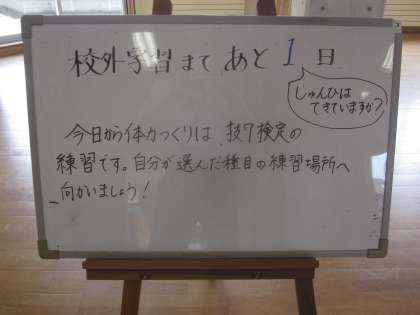 校外学習まで あと 1 日
じゅんびは
できていますか?
今日から体力つくりは、技7検定の
練習です。自分が選んだ種目の練習場所へ
向かいましょう!